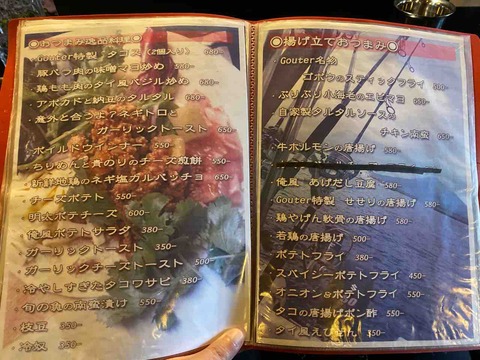 ◎おつまみ逸品料理◎
・Gouter特製 タコス(2個入り) 680-
・豚バラ肉の味噌マヨ炒め 580-
・鶏もも肉のタイ風バジル炒め 680-
・アボカドと納豆のタルタル 680-
・意外と合うよ?ネギトロと
ガーリックトースト 650
・ボイルドウィンナー 550-
・ちりめんと青のりのチーズ煎餅 550-
・新鮮地鶏のネギ塩カルパッチョ 650-
・チーズポテト 550-
・明太ポテチーズ 600-
・俺風ポテトサラダ 380-
・ガーリックトースト 350-
・ガーリックチーズトースト 500-
・冷やしすぎたタコワサビ 380-
・旬の魚の南蛮漬け 550-
・枝豆 350-
・冷奴 350-
◎揚げ立ておつまみ◎
・Gouter名物
ゴボウのスティックフライ 500-
・ぷりぷり小海老のエビマヨ 680-
・自家製タルタルソースの
チキン南蛮 650-
・牛ホルモンの唐揚げ 580-
・俺風 あげだし豆腐 480-
・Gouter特製 せせりの唐揚げ 580-
・鶏やげん軟骨の唐揚げ 580-
・若鶏の唐揚げ 500-
・ポテトフライ 380-
・スパイシーポテトフライ 450-
・オニオン&ポテトフライ 550-
・タコの唐揚げポン酢 550-
・タイ風えびせん 350-